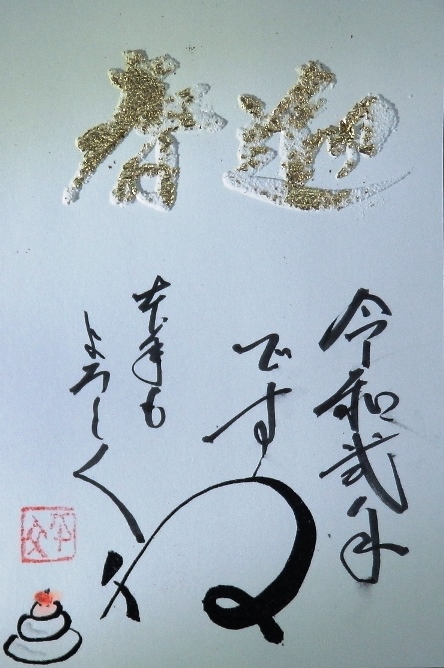 迎春
令和弐年
ですね
本年も
よろしく